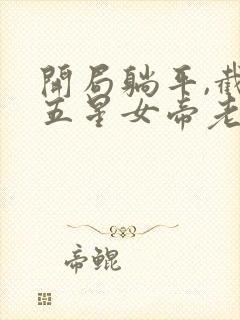 開局躺平,截
五星女帝老
帝鲲